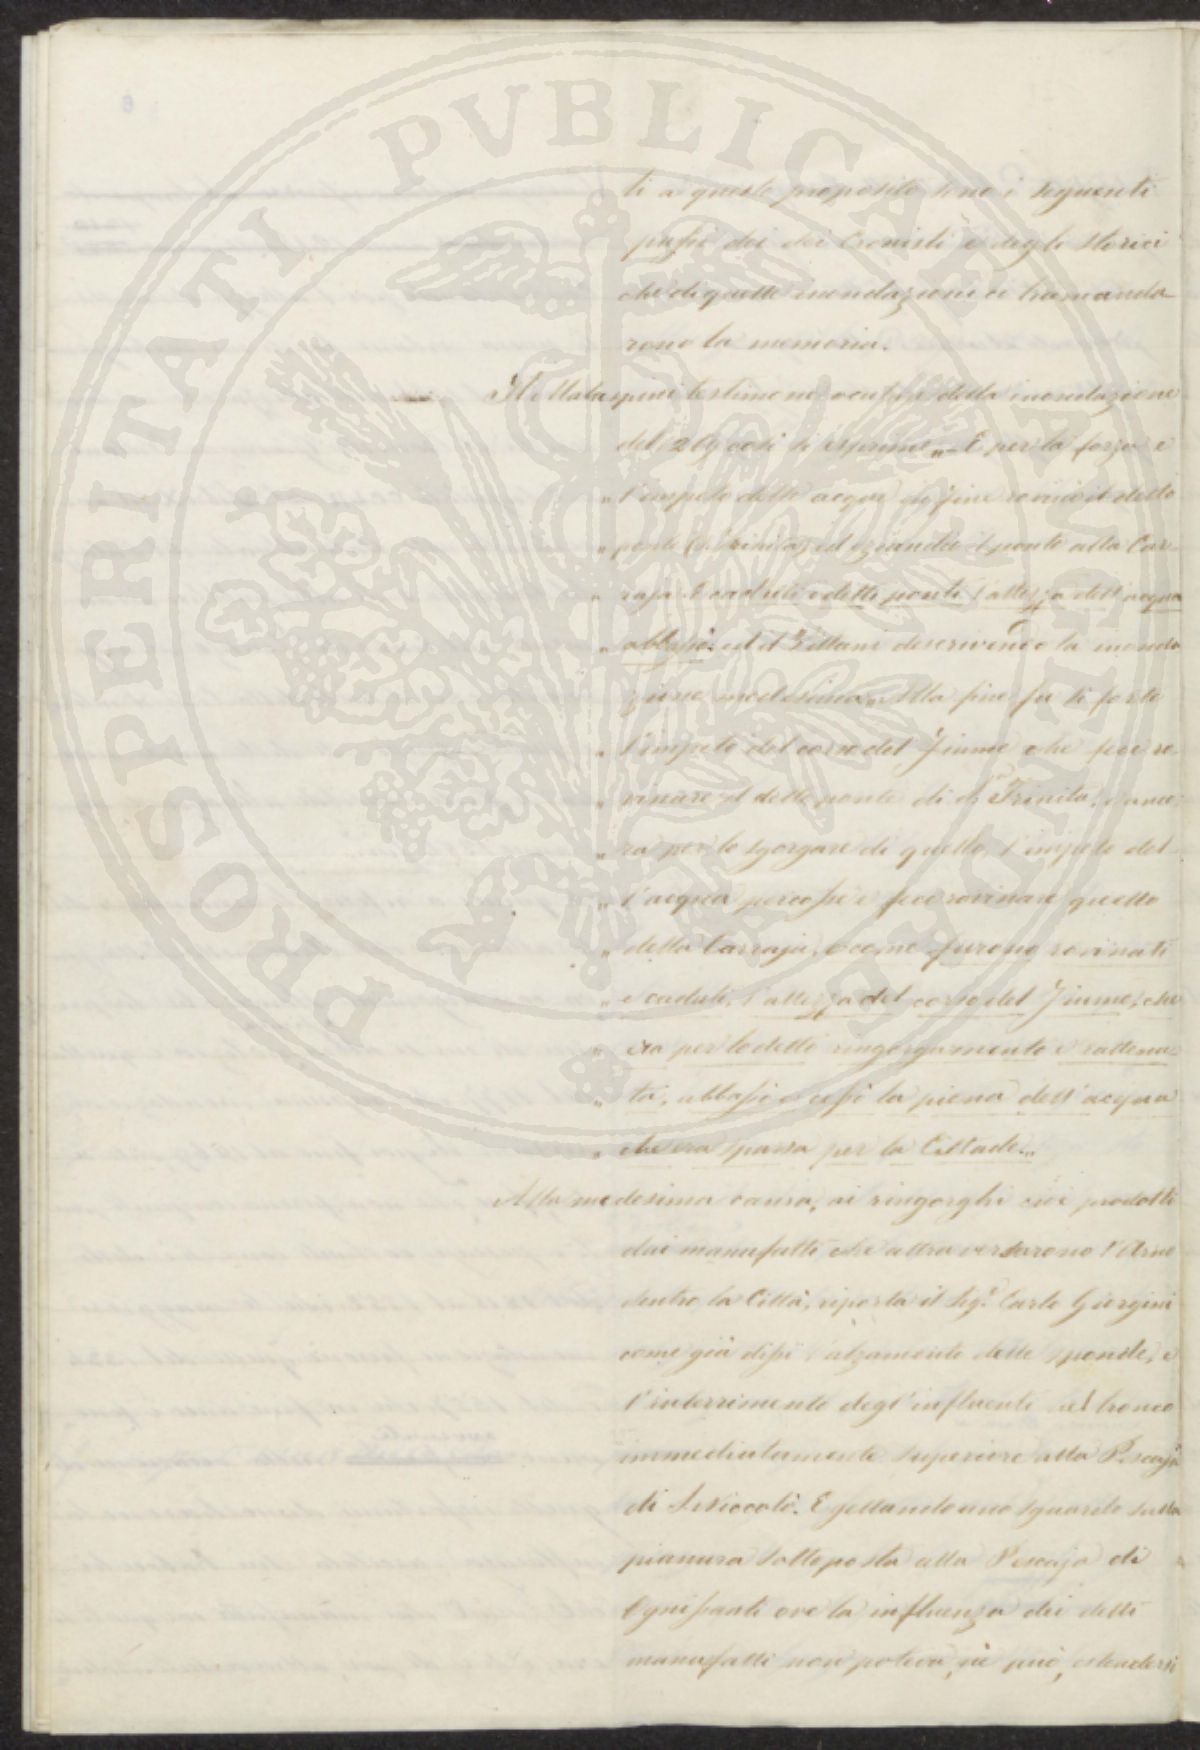 PROSPERITATI PVBLICAE AVGENDAE
ti a questo proposito sono i seguenti
passi dei dei Cronisti e degli Storici
che di quelle inondazioni ci tramanda-
rono la memoria.
Il Malaspini testimone oculare della inondazione
del 1269 così si esprime „ E per la forza e
„ l'impeto delle acque in fine rovinò il detto
„ ponte (S. Trinita) ed eziandio il ponte alla Car-
„ raja. E caduti i detti ponti l'altezza dell'acqua
„ abbassò: ed il Villani descrivendo la inonda
zione medesima „ Alla fine fu sì forte
„ l'impeto del corso del Fiume che fece ro-
„ vinare il detto ponte di S.a Trinita, e anco-
„ ra per lo sgorgare di quello, l'impeto del-
„ l'acqua percosse e fece rovinare quello
„ della Carraja, e come furono rovinati
„ e caduti, l'altezza del corso del Fiume, che
„ era per lo detto ringorgamento e rattenu-
„ ta, abbassò e cessò la piena dell'acqua
„ che era sparsa per la Cittade. „
Alla medesima causa, ai ringorghi cioè prodotti
dai manufatti che attraversarono l'Arno
dentro la Città, riporta il Sig.r Carlo Giorgini
come già dissi l'alzamento delle sponde, e
l'interrimento degl'influenti nel tronco
immediatamente superiore alla Pescaja
di S. Niccolò. E gettando uno sguardo sulla
pianura sottoposta alla Pescaja di
Ognissanti ove la influenza dei detti
manufatti non poteva, nè può, estendersi